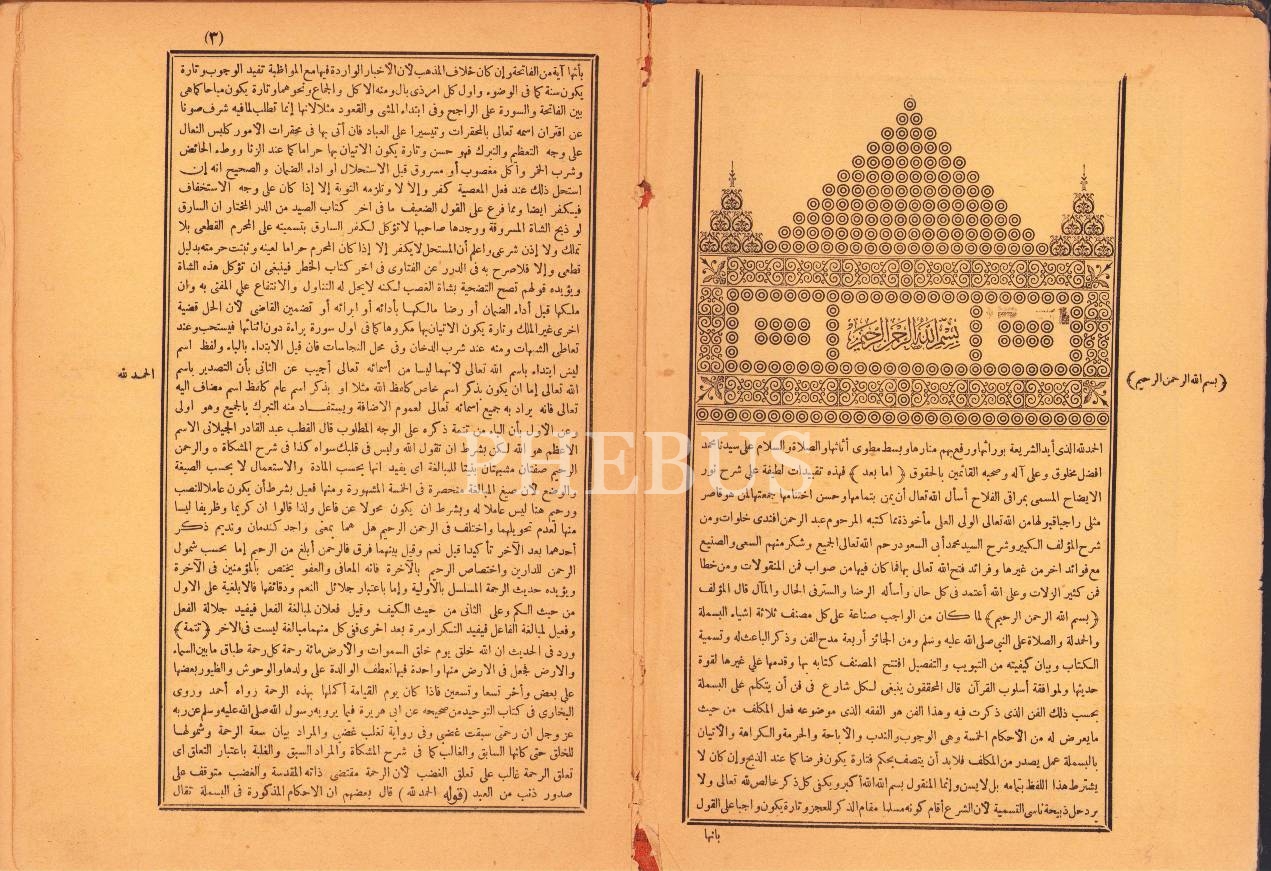 بسم الله الرحمن الرحيم
﴿بسم الله الرحمن الرحيم﴾
الحمد لله الذى أيد الشريعة بورائها ورفع بهم منارها وبسط مطوى أثنائها والصلاة والسلام على سيدنا محمد
افضل مخلوق وعلى آله وصحبه القائمين بالحقوق ﴿اما بعد﴾ فهذه تقييدات لطيفة على شرح نور
الايضاح المسمى بمراقى الفلاح أسأل الله تعالى أن يمن بتمامها وحسن اختتامها جمعتها لمن هو قاصر
مثلى راجيا قبولها من الله تعالى الولى العلى مأخوذة مما كتبه المرحوم عبد الرحمن افندى خلوات ومن
شرح المؤلف الكبير وشرح السيد محمد أبى السعود رحم الله تعالى الجميع وشكر منهم السعى والصنيع
مع فوائد اخر من غيرها وفرائد فتح الله تعالى بها فما كان فيها من صواب فمن المنقولات ومن خطا
فمن كثير الزلات وعلى الله أعتمد فى كل حال وأسأله الرضا والستر فى الحال والمآل قال المؤلف
﴿بسم الله الرحمن الرحيم﴾ لما كان من الواجب صناعة على كل مصنف ثلاثة اشياء البسملة
والحمدلة والصلاة على النبى صلى الله عليه وسلم ومن الجائز أربعة مدح الفن وذكر الباعث له وتسمية
الكتاب وبيان كيفيته من التبويب والتفصيل افتتح المصنف كتابه بها وقدمها على غيرها لقوة
حديثها ولموافقة أسلوب القرآن قال المحققون ينبغى لكل شارع فى فن أن يتكلم على البسملة
بحسب ذلك الفن الذى ذكرت فيه وهذا الفن هو الفقه الذى موضوعه فعل المكلف من حيث
ما يعرض له من الأحكام الخمسة وهى الوجوب والندب والاباحة والحرمة والكراهة والاتيان
بالبسملة عمل يصدر من المكلف فلابد أن يتصف بحكم فتارة يكون فرضا كما عند الذبح وإن كان لا
يشترط هذا اللفظ بتمامه بل لا يسن وإنما المنقول بسم الله الله أكبر ويكفى كل ذكر خالص لله تعالى ولا
يرد حل ذبيحة ناسى التسمية لأن الشرع أقام كونه مسلما مقام الذكر للعجز وتارة يكون واجبا على القول
بانها
(٣)
بأنها آية من الفاتحة وإن كان خلاف المذهب لأن الأخبار الواردة فيها مع المواظبة تفيد الوجوب وتارة
يكون سنة كما فى الوضوء واول كل امر ذى بال ومنه الاكل والجماع ونحوهما وتارة يكون مباحا كما هى
بين الفاتحة والسورة على الراجح وفى ابتداء المشى والقعود مثلا لانها إنما تطلب لما فيه شرف صونا
عن اقتران اسمه تعالى بالمحقرات وتيسيرا على العباد فان أتى بها فى محقرات الأمور كلبس النعال
على وجه التعظيم والتبرك فهو حسن وتارة يكون الاتيان بها حراما كما عند الزنا ووطء الحائض
وشرب الخمر وأكل مغصوب أو مسروق قبل الاستحلال او اداء الضمان والصحيح انه إن
استحل ذلك عند فعل المعصية كفر وإلا لا وتلزمه التوبة إلا إذا كان على وجه الاستخفاف
فيكفر ايضا ومما فرع على القول الضعيف ما فى اخر كتاب الصيد من الدر المختار ان السارق
لو ذبح الشاة المسروقة ووجدها صاحبها لا تؤكل لكفر السارق بتسميته على المحرم القطعى بلا
تملك ولا إذن شرعى واعلم أن المستحل لا يكفر إلا إذا كان المحرم حراما لعينه وثبتت حرمته بدليل
قطعى وإلا فلا صرح به فى الدرر عن الفتاوى فى اخر كتاب الحظر فينبغى ان تؤكل هذه الشاة
ويؤيده قولهم تصح التضحية بشاة الغصب لكنه لا يحل له التناول والانتفاع على المفتى به وان
ملكها قبل أداء الضمان او رضا مالكها بأدائه أو ابرائه أو تضمين القاضى لأن الحل قضية
اخرى غير الملك وتارة يكون الاتيان بها مكروها كما فى اول سورة براءة دون اثنائها فيستحب وعند
تعاطى الشبهات ومنه عند شرب الدخان وفى محل النجاسات فان قيل الابتداء بالباء ولفظ اسم
ليس ابتداء باسم الله تعالى لأنهما ليسا من أسمائه تعالى أجيب عن الثانى بأن التصدير باسم
الحمد لله
الله تعالى إما ان يكون بذكر اسم خاص كلفظ الله مثلا او بذكر اسم عام كلفظ اسم مضاف اليه
تعالى فانه يراد به جميع أسمائه تعالى لعموم الاضافة ويستفاد منه التبرك بالجميع وهو اولى
وعن الاول بأن الباء من تتمة ذكره على الوجه المطلوب قال القطب عبد القادر الجيلانى الاسم
الاعظم هو الله لكن بشرط ان تقول الله وليس فى قلبك سواه كذا فى شرح المشكاة * والرحمن
الرحيم صفتان مشبهتان بنيتا للمبالغة اى يفيد انها بحسب المادة والاستعمال لا بحسب الصيغة
والوضع لأن صيغ المبالغة منحصرة فى الخمسة المشهورة ومنها فعيل بشرط أن يكون عاملا للنصب
ورحيم هنا ليس عاملا له وبشرط ان يكون محولا عن فاعل ولذا قالوا ان كريما وظريفا ليسا
منها لعدم تحويلهما واختلف فى الرحمن الرحيم هل هما بمعنى واحد كندمان ونديم ذكر
أحدهما بعد الآخر تأكيدا قيل نعم وقيل بينهما فرق فالرحمن أبلغ من الرحيم إما بحسب شمول
الرحمن للدارين واختصاص الرحيم بالآخرة فانه المعافى والعفو يختص بالمؤمنين فى الآخرة
ويؤيده حديث الرحمة المسلسل بالأولية وإما باعتبار جلائل النعم ودقائقها فالابلغية على الاول
من حيث الكم وعلى الثانى من حيث الكيف وقيل فعلان لمبالغة الفعل فيفيد جلالة الفعل
وفعيل لمبالغة الفاعل فيفيد التكرار مرة بعد اخرى ففى كل منهما مبالغة ليست فى الاخر ﴿تتمة﴾
ورد فى الحديث ان الله خلق يوم خلق السموات والارض مائة رحمة كل رحمة طباق ما بين السماء
والارض فجعل فى الارض منها واحدة فيها تعطف الوالدة على ولدها والوحوش والطيور بعضها
على بعض وأخر تسعا وتسعين فاذا كان يوم القيامة أكملها بهذه الرحمة رواه أحمد وروى
البخارى فى كتاب التوحيد من صحيحه عن ابى هريرة فيما يرويه رسول الله صلى الله عليه وسلم عن ربه
عز وجل ان رحمتى سبقت غضبى وفى رواية تغلب غضبى والمراد بيان سعة الرحمة وشمولها
للخلق حتى كانها السابق والغالب كما فى شرح المشكاة والمراد السبق والغلبة باعتبار التعلق اى
تعلق الرحمة غالب على تعلق الغضب لأن الرحمة مقتضى ذاته المقدسة والغضب متوقف على
صدور ذنب من العبد (قوله الحمد لله) قال بعضهم ان الاحكام المذكورة فى البسملة تقال
PHEBUS